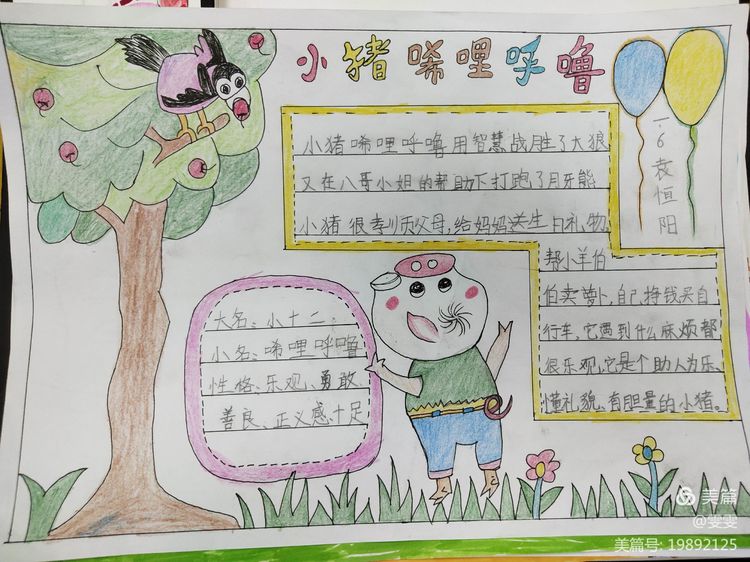 小猪唏哩呼噜
小猪唏哩呼噜用智慧战胜了大狼
又在八哥小姐的帮助下打跑了月牙熊
小猪很孝顺父母,给妈妈送生日礼物
帮小羊伯
伯卖萝卜,自己挣钱买自
行车,它遇到什么麻烦都
很乐观,它是个助人为乐、
懂礼貌、有胆量的小猪。
一.6袁恒阳
大名:小十二
小名:唏哩呼噜
性格:乐观、勇敢、
善良、正义感十足
美篇
@雯雯
美篇号: 19892125